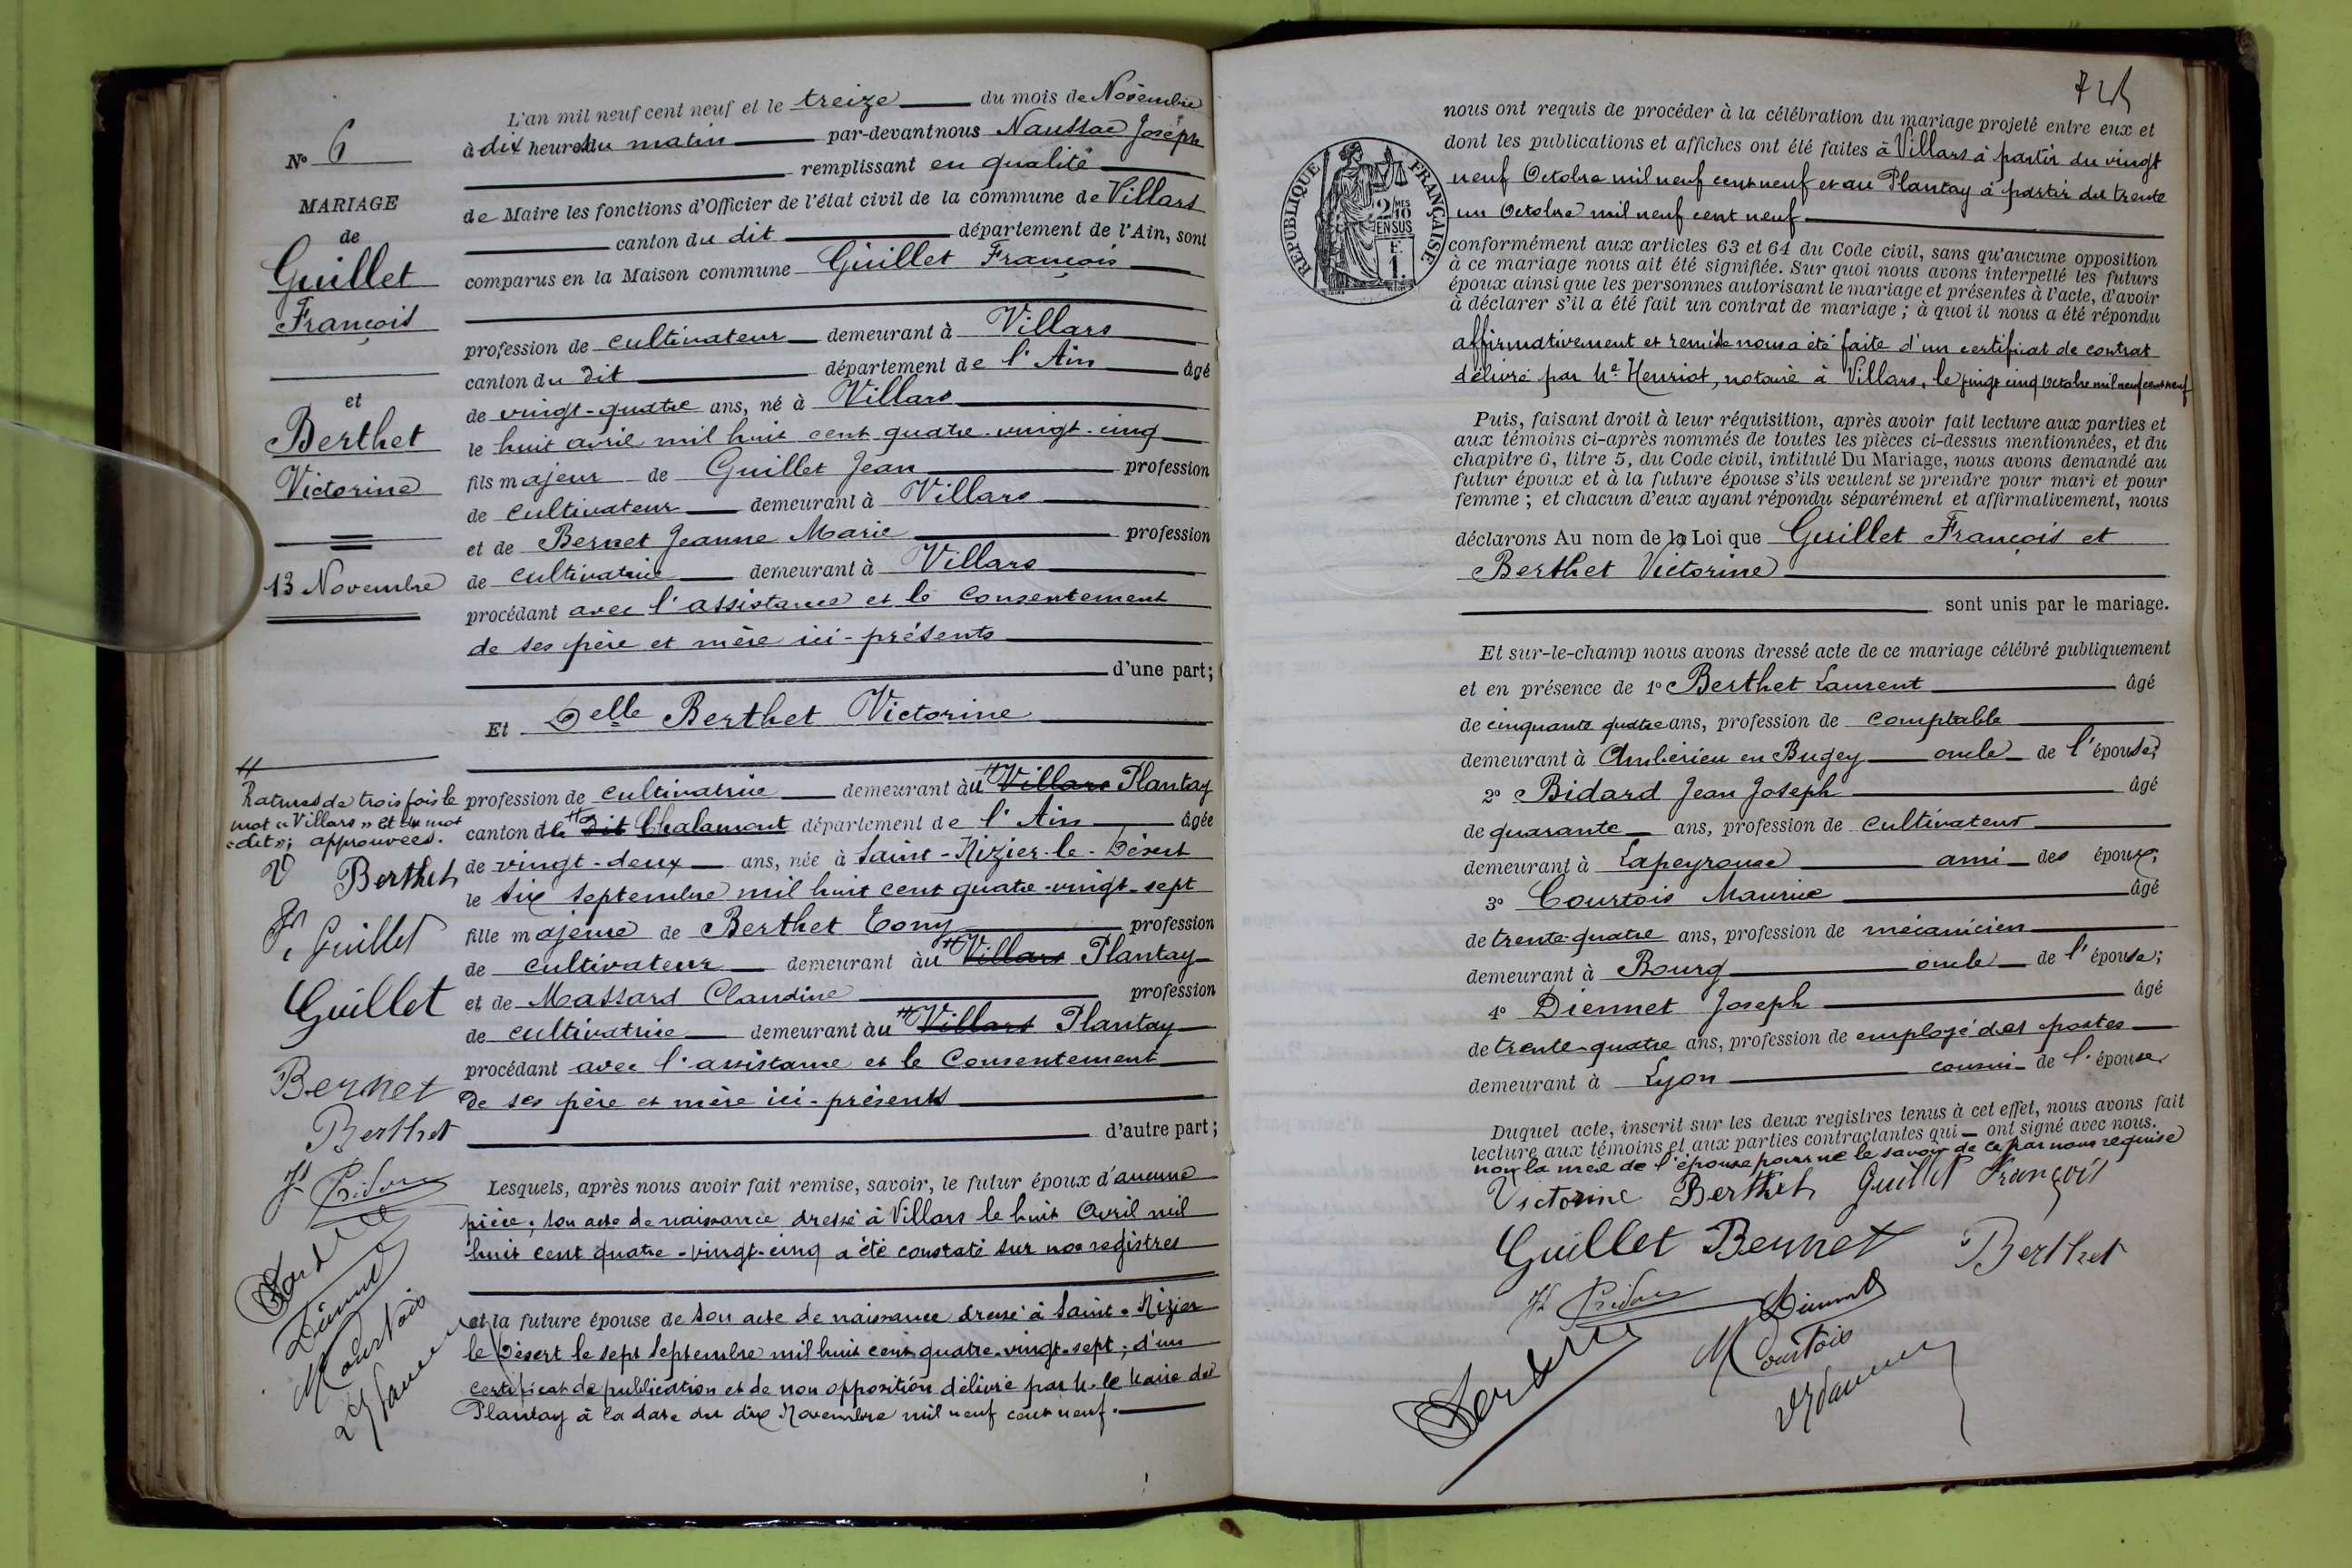 L'an mil neuf cent neuf et le treize du mois de Novembre
à dix heures du matin par-devant nous Naussac Joseph
remplissant en qualité
de Maire les fonctions d'Officier de l'état civil de la commune de Villars
canton du dit département de l'Ain, sont
comparus en la Maison commune Guillet François
profession de cultivateur demeurant à Villars
canton du dit département de l'Ain âgé
de vingt-quatre ans, né à Villars
le huit avril mil huit cent quatre-vingt-cinq
fils majeur de Guillet Jean profession
de cultivateur demeurant à Villars
et de Bernet Jeanne Marie profession
de cultivatrice demeurant à Villars
procédant avec l'assistance et le consentement
de ses père et mère ici-présents
d'une part;
Et Delle Berthet Victorine
profession de cultivatrice demeurant au Villars Plantay
canton de dit Chalamont département de l'Ain âgée
de vingt-deux ans, née à Saint-Nizier-le-Désert
le six Septembre mil huit cent quatre-vingt-sept
fille majeure de Berthet Tony profession
de cultivateur demeurant au Villars Plantay
et de Massard Claudine profession
de cultivatrice demeurant au Villars Plantay
procédant avec l'assistance et le Consentement
de ses père et mère ici-présents
d'autre part;
Lesquels, après nous avoir fait remise, savoir, le futur époux d'aucune
pièce; son acte de naissance dressé à Villars le huit Avril mil
huit cent quatre-vingt-cinq a été constaté sur nos registres
et la future épouse de son acte de naissance dressé à Saint-Nizier
le Désert le sept Septembre mil huit cent quatre-vingt-sept; d'un
certificat de publication et de non opposition délivré par M. le Maire du
Plantay à la date du dix Novembre mil neuf cent neuf.
No 6
MARIAGE
de
Guillet
François
et
Berthet
Victorine
13 Novembre
Ratures de trois fois le
mot "Villars" et du mot
"dit"; approuvées.
V Berthet
F. Guillet
Guillet
Bernet
Berthet
Jh Bidard
Diennet
M Courtois
nous ont requis de procéder à la célébration du mariage projeté entre eux et
dont les publications et affiches ont été faites à Villars à partir du vingt
neuf Octobre mil neuf cent neuf et au Plantay à partir du trente
un Octobre mil neuf cent neuf
RÉPUBLIQUE FRANÇAISE
2/10 MES
EN SUS
F.
1.
conformément aux articles 63 et 64 du Code civil, sans qu'aucune opposition
à ce mariage nous ait été signifiée. Sur quoi nous avons interpellé les futurs
époux ainsi que les personnes autorisant le mariage et présentes à l'acte, d'avoir
à déclarer s'il a été fait un contrat de mariage; à quoi il nous a été répondu
affirmativement et remise nous a été faite d'un certificat de contrat
délivré par Me Henriot, notaire à Villars, le vingt cinq Octobre mil neuf cent neuf
Puis, faisant droit à leur réquisition, après avoir fait lecture aux parties et
aux témoins ci-après nommés de toutes les pièces ci-dessus mentionnées, et du
chapitre 6, titre 5, du Code civil, intitulé Du Mariage, nous avons demandé au
futur époux et à la future épouse s'ils veulent se prendre pour mari et pour
femme; et chacun d'eux ayant répondu séparément et affirmativement, nous
déclarons Au nom de la Loi que Guillet François et
Berthet Victorine
sont unis par le mariage.
Et sur-le-champ nous avons dressé acte de ce mariage célébré publiquement
et en présence de 1o Berthet Laurent âgé
de cinquante quatre ans, profession de comptable
demeurant à Ambérieu en Bugey oncle de l'épouse;
2o Bidard Jean Joseph âgé
de quarante ans, profession de cultivateur
demeurant à Lapeyrouse ami des époux;
3o Courtois Maurice âgé
de trente-quatre ans, profession de mécanicien
demeurant à Bourg oncle de l'épouse;
4o Diennet Joseph âgé
de trente-quatre ans, profession de employé des postes
demeurant à Lyon cousin de l'épouse
Duquel acte, inscrit sur les deux registres tenus à cet effet, nous avons fait
lecture aux témoins et aux parties contractantes qui ont signé avec nous.
non la mère de l'épouse pour ne le savoir de ce par nous requise
Victorine Berthet Guillet François
Guillet Bernet Berthet
Jh Bidard Diennet
M Courtois